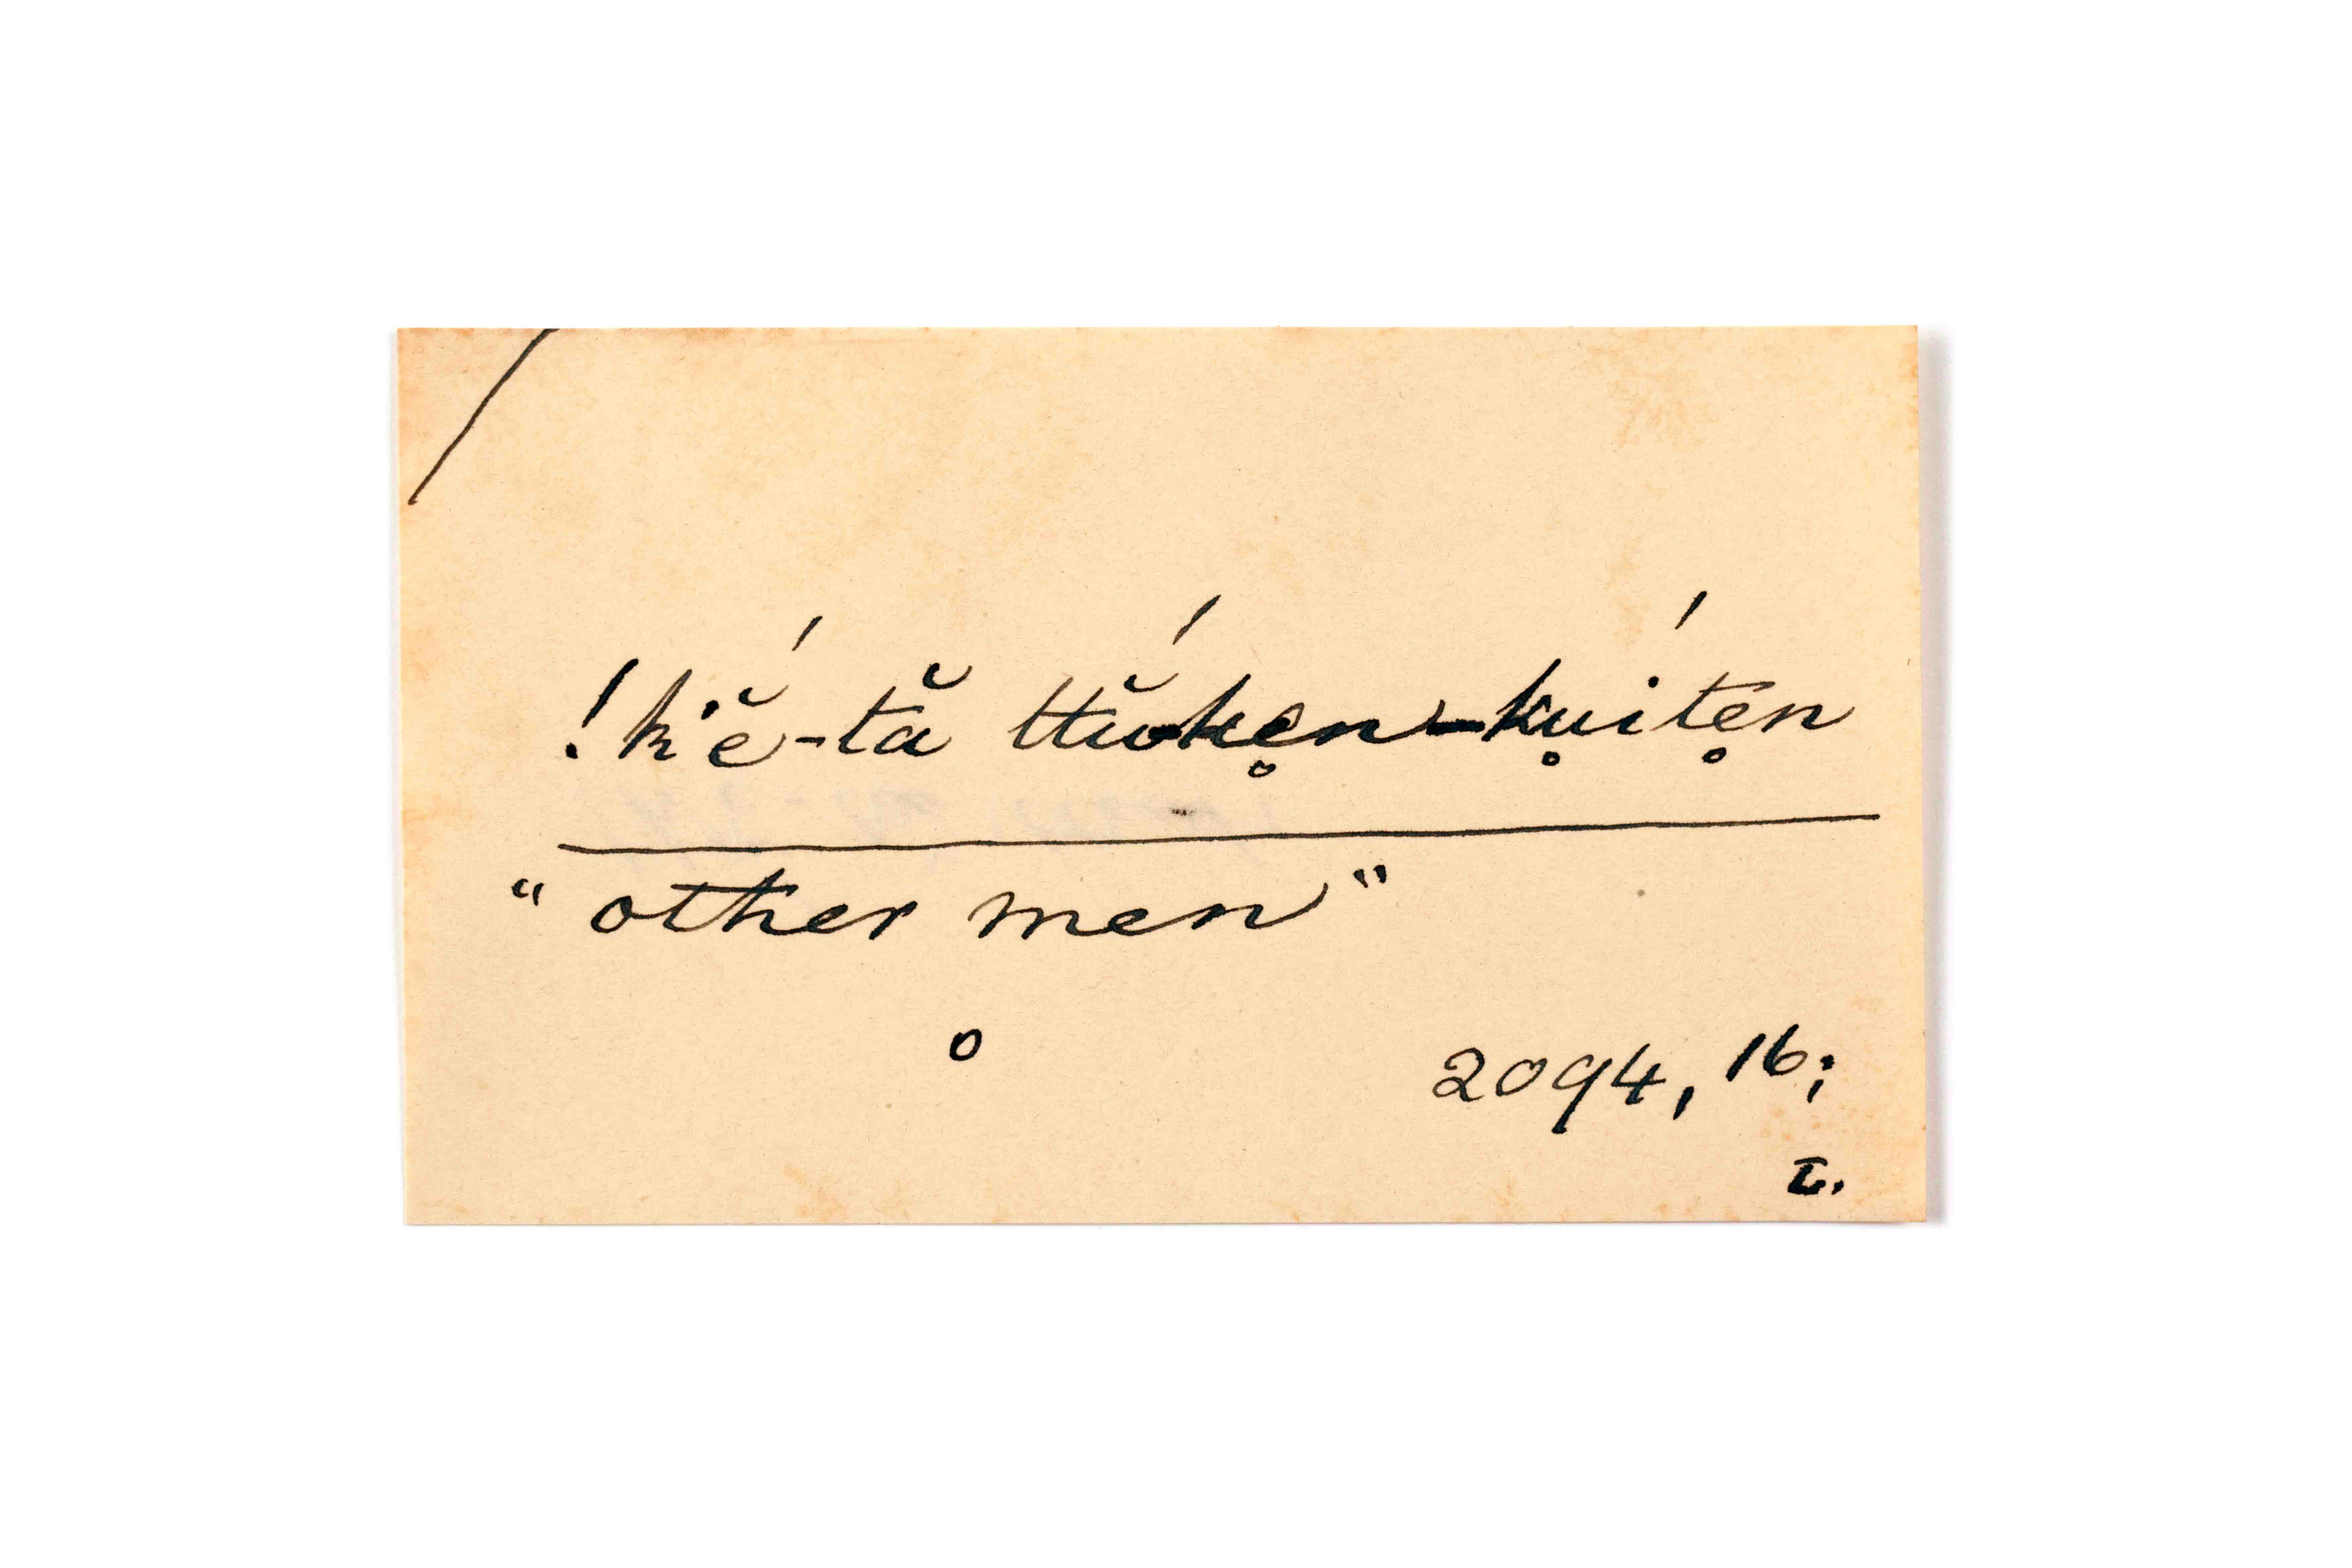 !k'ĕ́-tă ttŭ́ken̥-ku̥íte̥n
"other men"
o
2094, 16;
L.